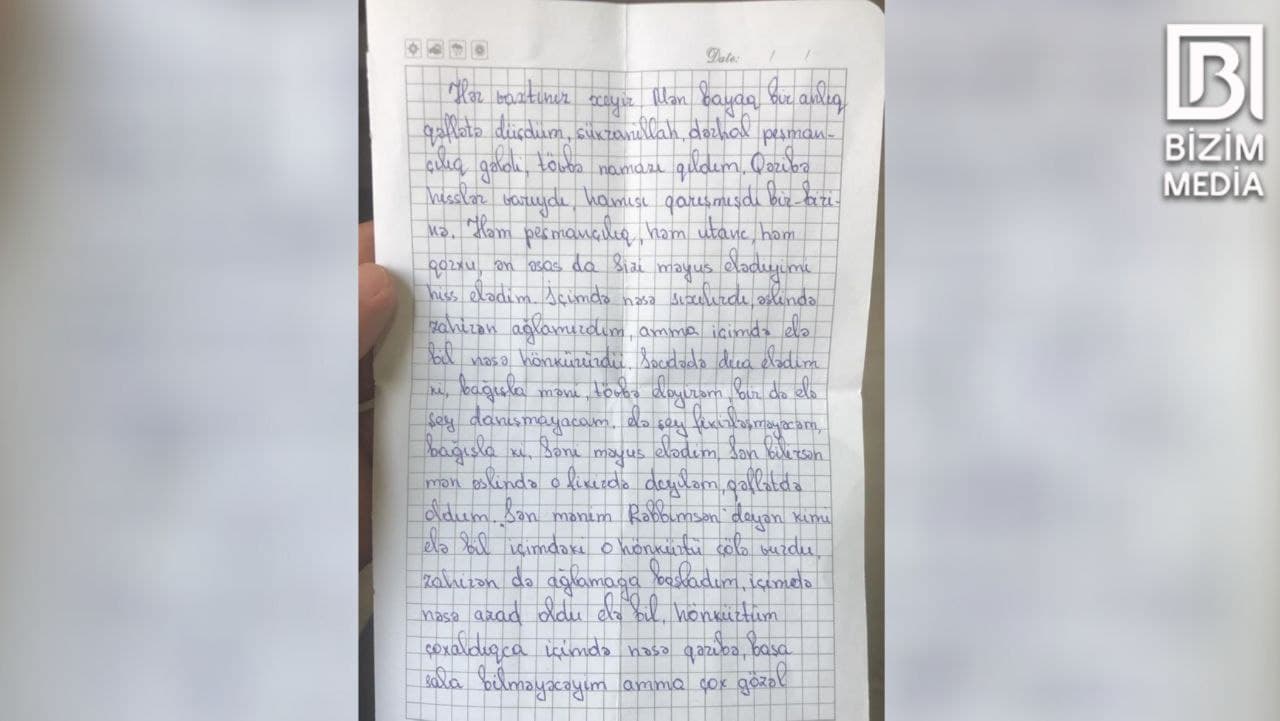 BİZİM
MEDİA
Date: / /
Hər vaxtınız xeyir. Mən bayaq bir anlıq
qəflətə düşdüm, şükranillah, dərhal peşman-
çılıq gəldi, tövbə namazı qıldım. Qəribə
hisslər varıydı, hamısı qarışmışdı bir-biri-
nə. Həm peşmançılıq, həm utanc, həm
qorxu, ən əsas da Sizi məyus elədiyimi
hiss elədim. İçimdə nəsə sıxılırdı, əslində
zahirən ağlamırdım, amma içimdə elə
bil nəsə hönkürürdü. Səcdədə dua elədim
ki, bağışla məni, tövbə eləyirəm, bir də elə
şey danışmayacam, elə şey fikirləşməyəcəm,
bağışla ki, Səni məyus elədim, Sən bilirsən
mən əslində o fikirdə deyiləm, qəflətdə
oldum. "Sən mənim Rəbbimsən" deyən kimi
elə bil içimdəki o hönkürtü çölə vurdu,
zahirən də ağlamağa başladım, içimdə
nəsə azad oldu elə bil, hönkürtüm
çoxaldıqca içimdə nəsə qəribə, başa
sala bilməyəcəyim amma çox gözəl